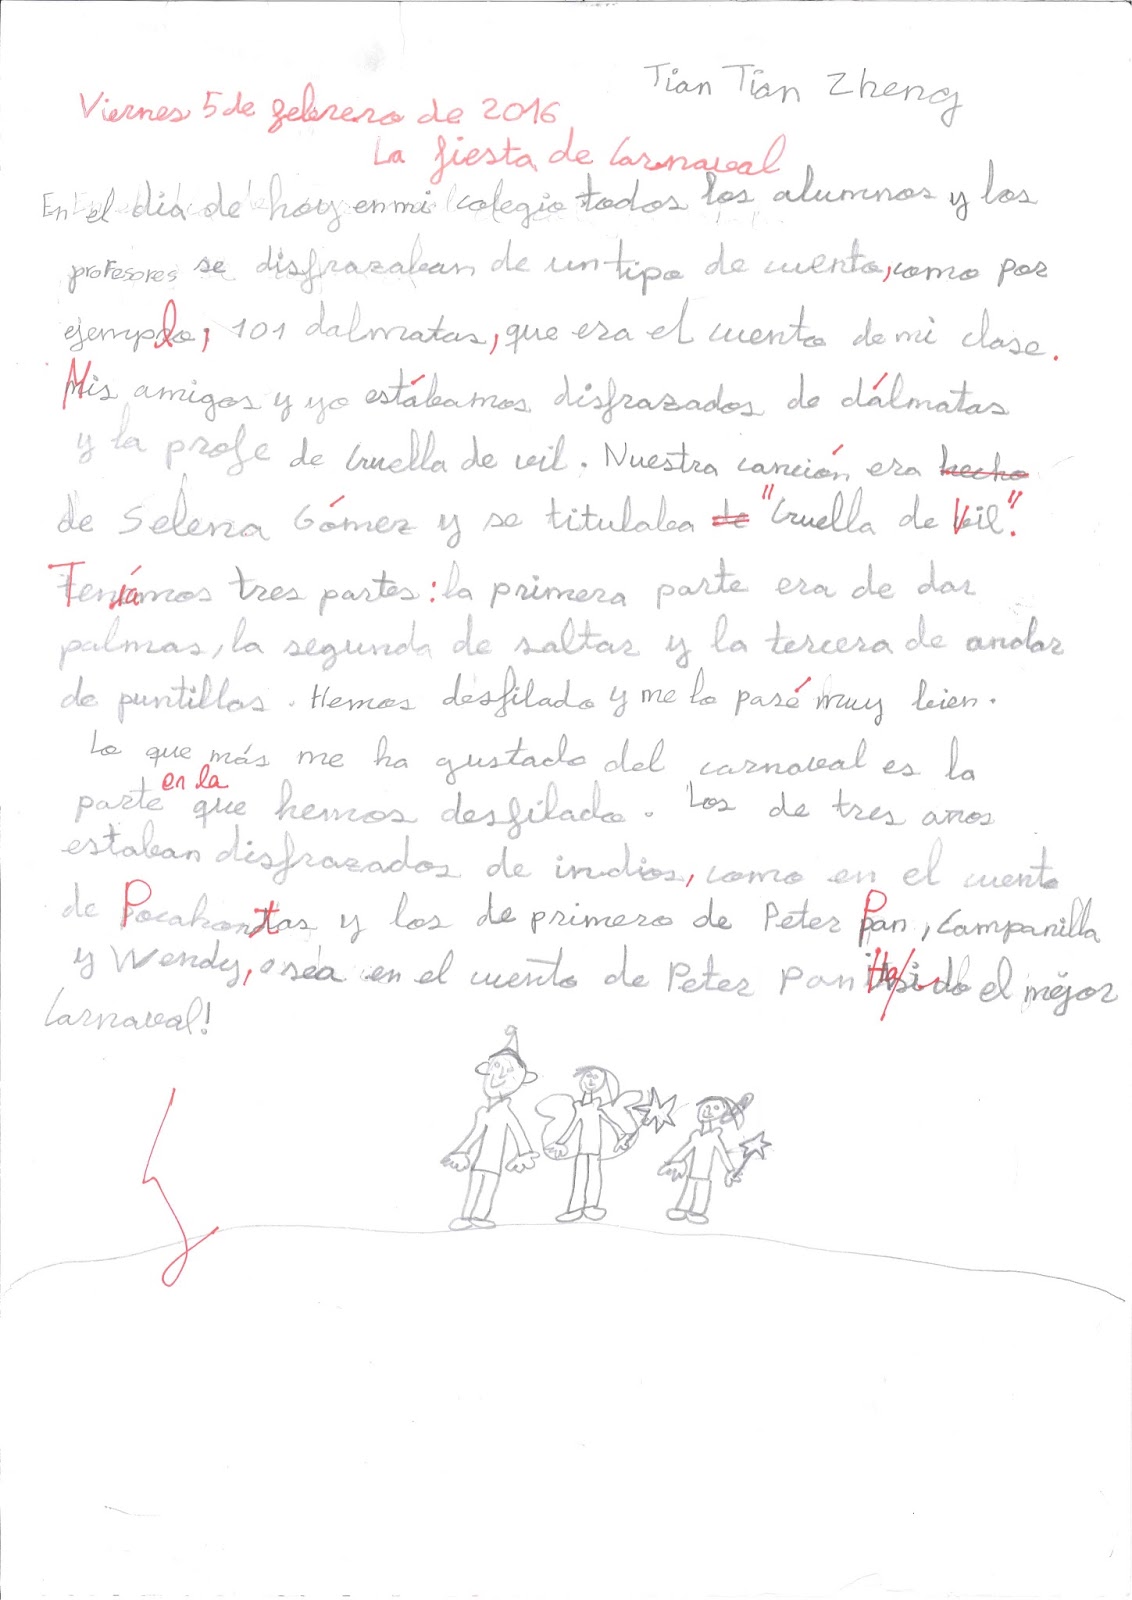 Tian Tian Zheng
Viernes 5 de febrero de 2016
La fiesta de Carnaval
En el día de hoy en mi colegio todos los alumnos y los
profesores se disfrazaban de un tipo de cuento, como por
ejemplo, 101 dalmatas, que era el cuento de mi clase.
Mis amigos y yo estábamos disfrazados de dálmatas
y la profe de Cruella de vil. Nuestra canción era hecho
de Selena Gómez y se titulaba de "Cruella de Vil".
Teníamos tres partes: la primera parte era de dar
palmas, la segunda de saltar y la tercera de andar
de puntillas. Hemos desfilado y me lo pasé muy bien.
Lo que más me ha gustado del carnaval es la
en la
parte que hemos desfilado. Los de tres anos
estaban disfrazados de indios, como en el cuento
de Pocahontas y los de primero de Peter Pan, Campanilla
y Wendy, o sea en el cuento de Peter Pan Ha sido el mejor
Carnaval!